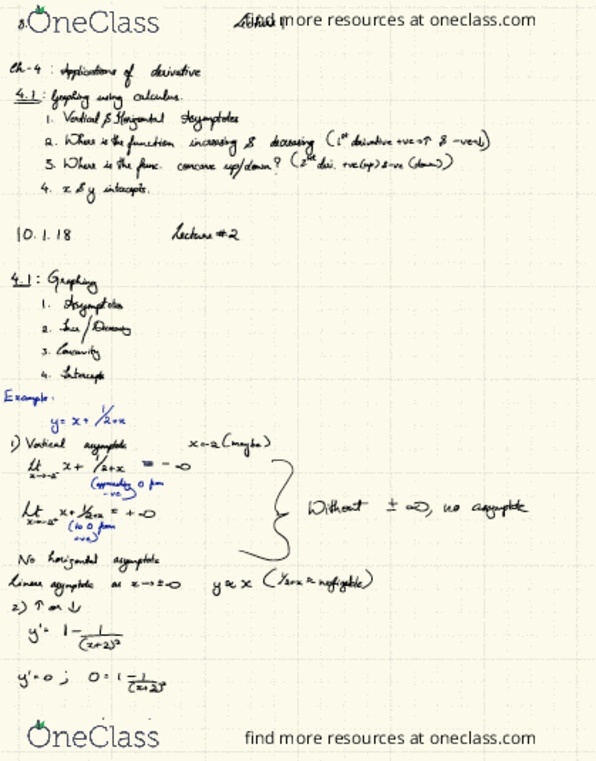 OneClass find more resources at oneclass.com
8. Lecture 1
Ch-4 : Applications of derivative
4.1 : Graphing using calculus.
1. Vertical & Horizontal Asymptotes
2. Where is the function increasing & decreasing (1st derivative +ve→↑ & -ve→↓)
3. Where is the func. concave up/down? (2nd deri. +ve(up) & -ve (down))
4. x & y intercepts.
10.1.18 Lecture #2
4.1 : Graphing
1. Asymptotes
2. Inc / Decreasing
3. Concavity
4. Intercepts
Example:
y = x + 1/2+x
1) Vertical asymptote x=-2 (maybe)
Lt x→-2⁻ x + 1/2+x = -∞
(approaching 0 from -ve)
Lt x→-2⁺ x + 1/2+x = +∞
(to 0 from +ve)
Without ±∞, no asymptote
No horizontal asymptote
Linear asymptote as x→±∞ y≈x (1/2+x ≈ negligible)
2) ↑ or ↓
y' = 1 - 1/(x+2)²
y'=0 ; 0 = 1 - 1/(x+2)²
OneClass find more resources at oneclass.com